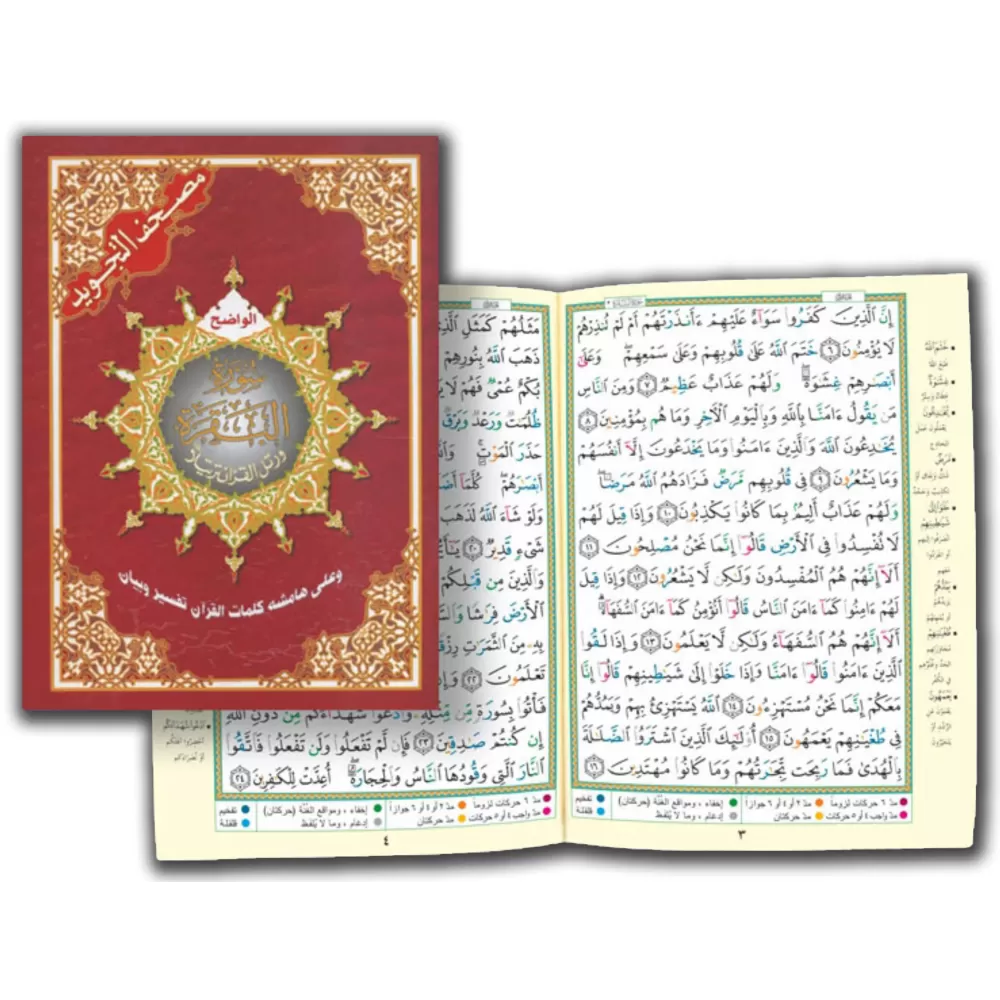 مصحف التجويد
الواضح
سورة
البقرة
ورتل القرآن ترتيلا
وعلى هامشه كلمات القرآن تفسير وبيان
إِنَّ ٱلَّذِينَ كَفَرُوا۟ سَوَآءٌ عَلَيْهِمْ ءَأَنذَرْتَهُمْ أَمْ لَمْ تُنذِرْهُمْ
لَا يُؤْمِنُونَ ٦ خَتَمَ ٱللَّهُ عَلَىٰ قُلُوبِهِمْ وَعَلَىٰ سَمْعِهِمْ ۖ وَعَلَىٰٓ
أَبْصَـٰرِهِمْ غِشَـٰوَةٌ ۖ وَلَهُمْ عَذَابٌ عَظِيمٌ ٧ وَمِنَ ٱلنَّاسِ
مَن يَقُولُ ءَامَنَّا بِٱللَّهِ وَبِٱلْيَوْمِ ٱلْـَٔاخِرِ وَمَا هُم بِمُؤْمِنِينَ ٨
يُخَـٰدِعُونَ ٱللَّهَ وَٱلَّذِينَ ءَامَنُوا۟ وَمَا يَخْدَعُونَ إِلَّآ أَنفُسَهُمْ
وَمَا يَشْعُرُونَ ٩ فِى قُلُوبِهِم مَّرَضٌ فَزَادَهُمُ ٱللَّهُ مَرَضًا ۖ
وَلَهُمْ عَذَابٌ أَلِيمٌۢ بِمَا كَانُوا۟ يَكْذِبُونَ ١٠ وَإِذَا قِيلَ لَهُمْ
لَا تُفْسِدُوا۟ فِى ٱلْأَرْضِ قَالُوٓا۟ إِنَّمَا نَحْنُ مُصْلِحُونَ ١١
أَلَآ إِنَّهُمْ هُمُ ٱلْمُفْسِدُونَ وَلَـٰكِن لَّا يَشْعُرُونَ ١٢ وَإِذَا قِيلَ
لَهُمْ ءَامِنُوا۟ كَمَآ ءَامَنَ ٱلنَّاسُ قَالُوٓا۟ أَنُؤْمِنُ كَمَآ ءَامَنَ ٱلسُّفَهَآءُ ۗ
أَلَآ إِنَّهُمْ هُمُ ٱلسُّفَهَآءُ وَلَـٰكِن لَّا يَعْلَمُونَ ١٣ وَإِذَا لَقُوا۟
ٱلَّذِينَ ءَامَنُوا۟ قَالُوٓا۟ ءَامَنَّا وَإِذَا خَلَوْا۟ إِلَىٰ شَيَـٰطِينِهِمْ قَالُوٓا۟ إِنَّا
مَعَكُمْ إِنَّمَا نَحْنُ مُسْتَهْزِءُونَ ١٤ ٱللَّهُ يَسْتَهْزِئُ بِهِمْ وَيَمُدُّهُمْ
فِى طُغْيَـٰنِهِمْ يَعْمَهُونَ ١٥ أُو۟لَـٰٓئِكَ ٱلَّذِينَ ٱشْتَرَوُا۟ ٱلضَّلَـٰلَةَ
بِٱلْهُدَىٰ فَمَا رَبِحَت تِّجَـٰرَتُهُمْ وَمَا كَانُوا۟ مُهْتَدِينَ ١٦
مدّ ٦ حركات لزوماً مدّ ٢ أو ٤ أو ٦ جوازاً إخفاء ، ومواقع الغُنَّة (حركتان) تفخيم
مدّ واجب ٤ أو ٥ حركات مدّ حركتان إدغام ، وما لا يُلفَظ قلقلة
٣
مَثَلُهُمْ كَمَثَلِ
ذَهَبَ ٱللَّهُ بِنُورِهِمْ
بُكْمٌ عُمْىٌ فَهُمْ لَا
ظُلُمَـٰتٌ وَرَعْدٌ وَبَرْقٌ
حَذَرَ ٱلْمَوْتِ ۚ
أَبْصَـٰرَهُمْ ۖ كُلَّمَآ
وَلَوْ شَآءَ ٱللَّهُ لَذَهَبَ
شَىْءٍ قَدِيرٌ ٢٠
وَٱلَّذِينَ مِن قَبْلِكُمْ
ٱلْأَرْضَ فِرَٰشًا
بِهِۦ مِنَ ٱلثَّمَرَٰتِ
تَعْلَمُونَ ٢٢
فَأْتُوا۟ بِسُورَةٍ مِّن مِّثْلِهِۦ وَٱدْعُوا۟ شُهَدَآءَكُم مِّن دُونِ ٱللَّهِ
إِن كُنتُمْ صَـٰدِقِينَ ٢٣ فَإِن لَّمْ تَفْعَلُوا۟ وَلَن تَفْعَلُوا۟ فَٱتَّقُوا۟
ٱلنَّارَ ٱلَّتِى وَقُودُهَا ٱلنَّاسُ وَٱلْحِجَارَةُ ۖ أُعِدَّتْ لِلْكَـٰفِرِينَ ٢٤
مدّ ٦ حركات لزوماً مدّ ٢ أو ٤ أو ٦ جوازاً إخفاء ، ومواقع الغُنَّة (حركتان) تفخيم
مدّ واجب ٤ أو ٥ حركات مدّ حركتان إدغام ، وما لا يُلفَظ قلقلة
٤